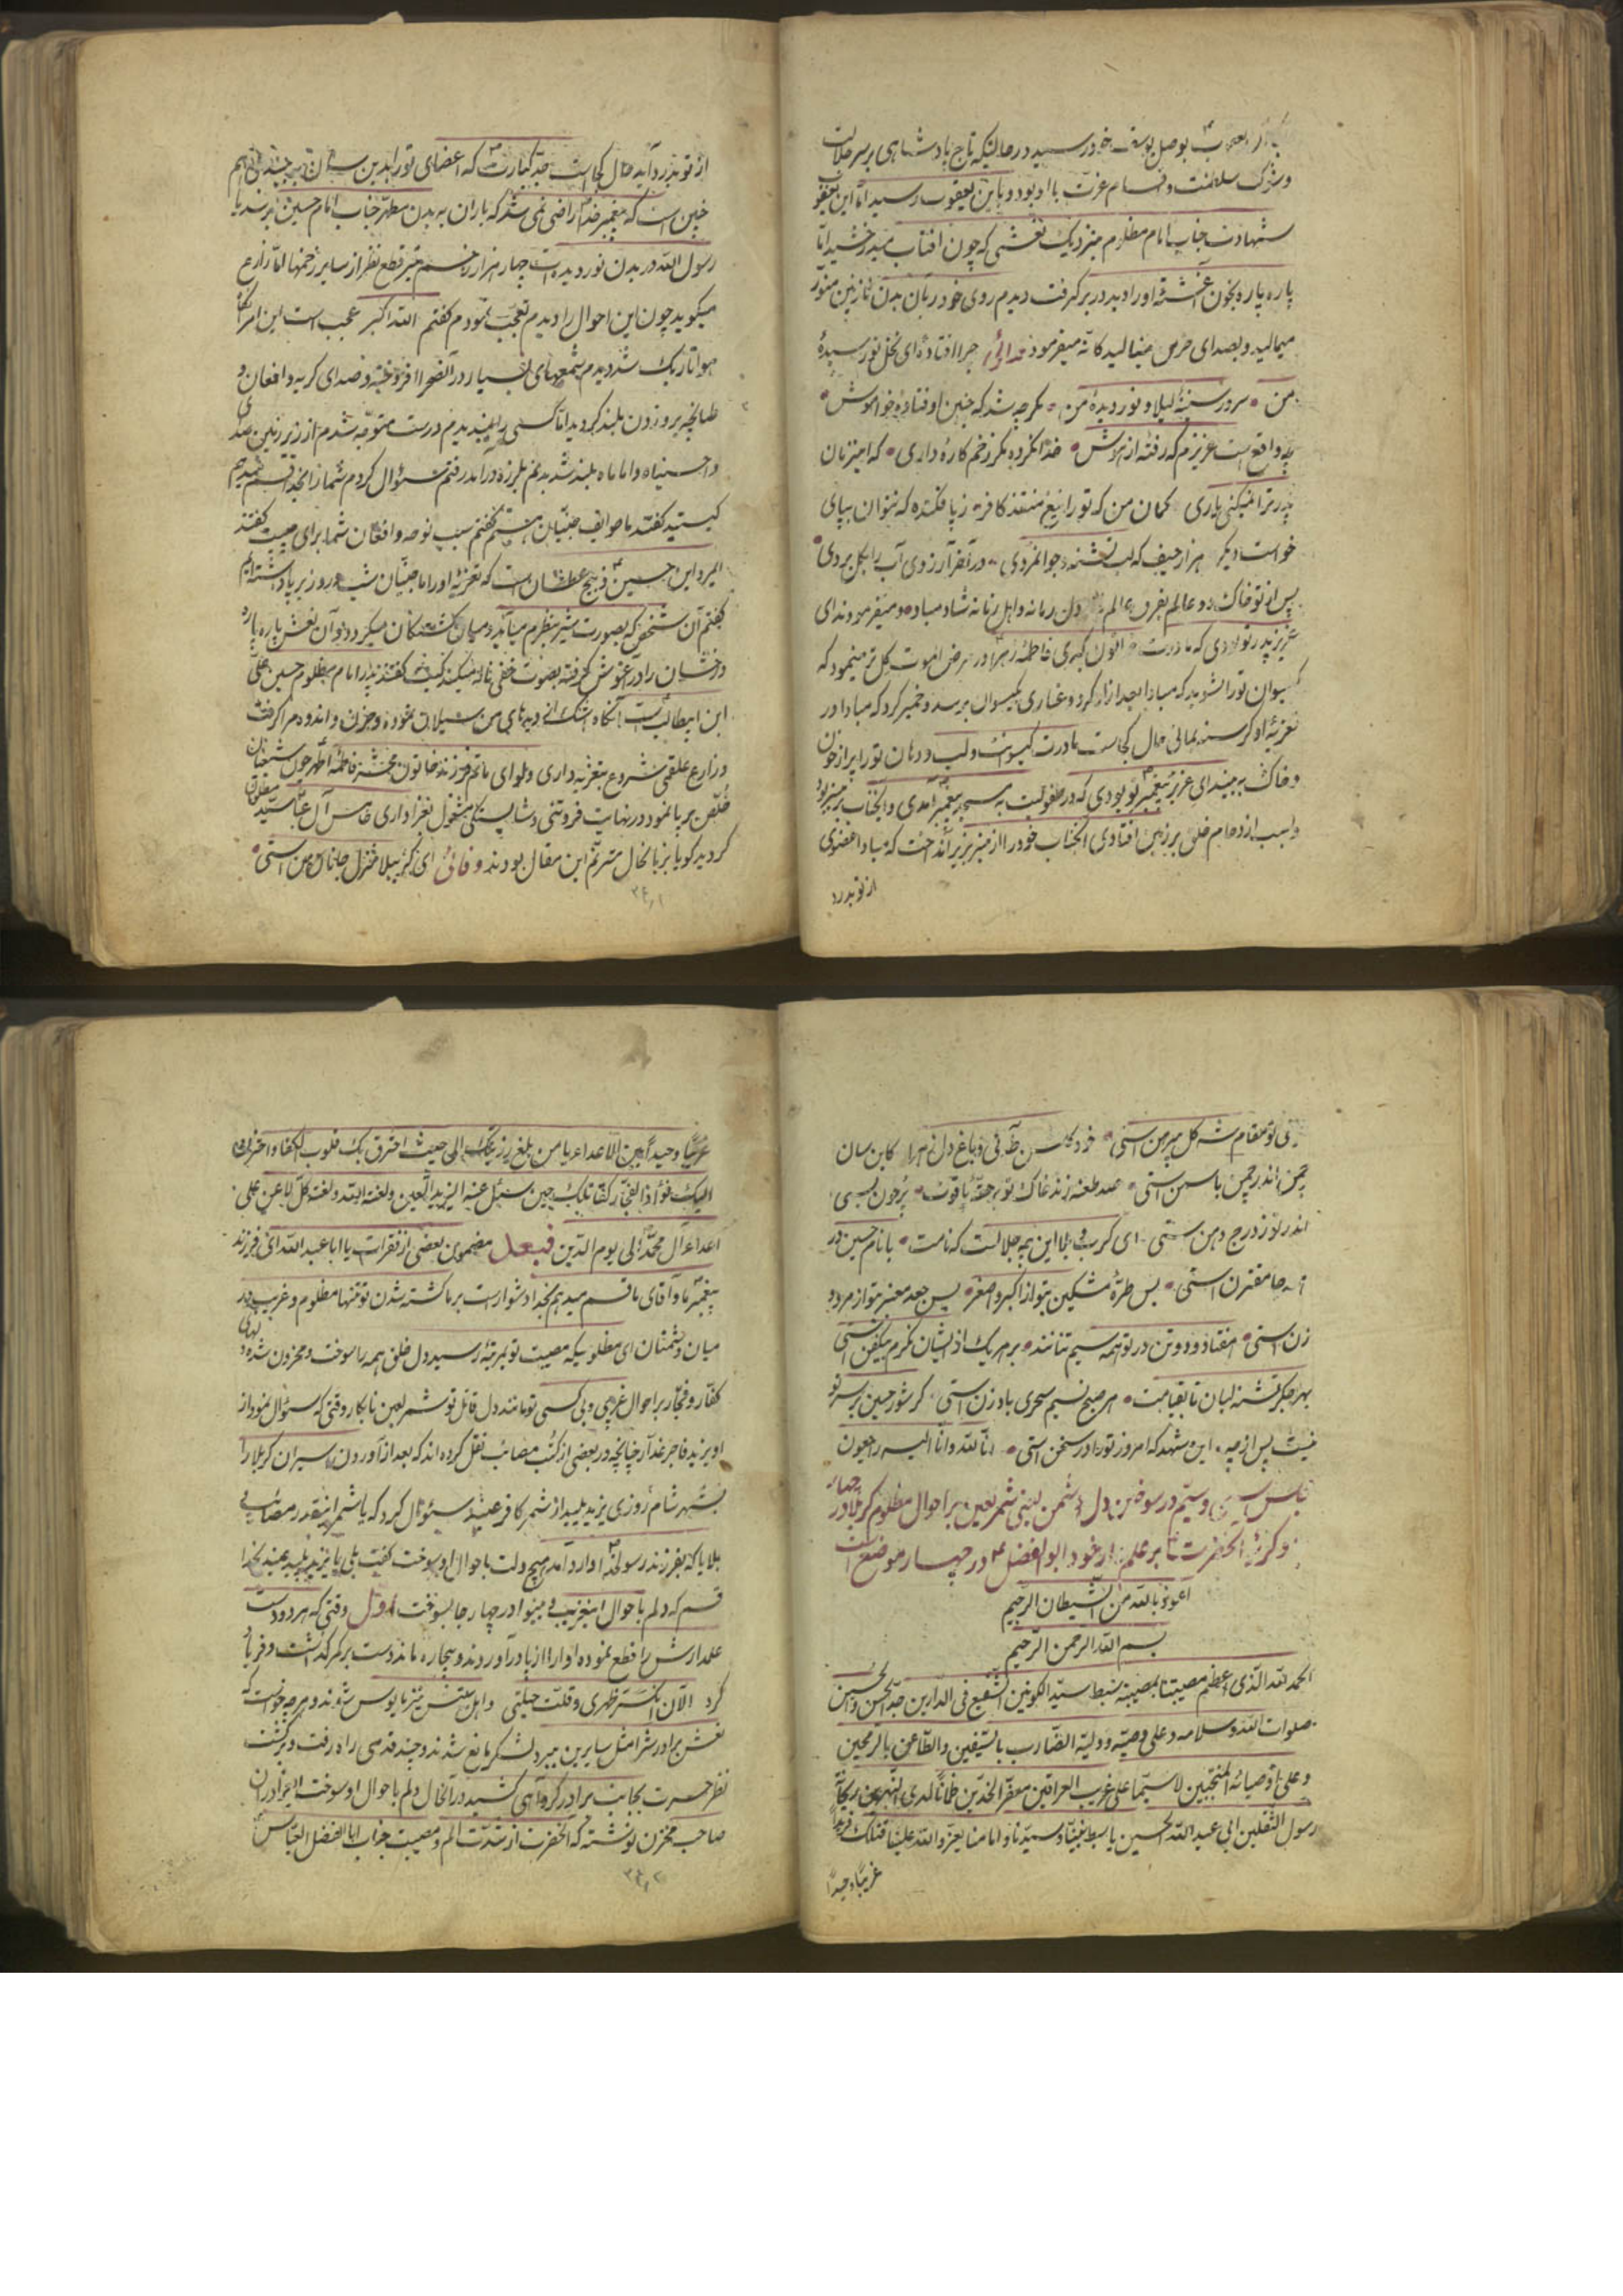 بوصل یوسف خود رسید در حالتیکه تاج پادشاهی بر سر جلالت
و شوکت سلطنت و تمام عزت با او بود و باین یعقوب رسید اما این یعقوب
شهادت جناب امام مظلوم بنزدیک نعشی که چون افتاب میدرخشید اما
پاره پاره بخون آغشته او را دید در بر گرفت دیدم روی خود را بان بدن نازنین منور
میمالید و بصدای حزین مینالید کانه میفرمود فدائی چرا افتاده‌ای نخل نورسیده
من سرور سینه لیلا و نور دیده من مگر چه شد که چنین اوفتاده خواموش
چه واقع است عزیزم که رفته از هوش خدا نکرده مگر زخم کاره داری که اینزمان
پدر ترا نمیکنی یاری گمان من که تو را تیغ منقذ کافر ز پا فکنده که نتوان بپای
خواست دیگر هزار حیف که لب تشنه و جوانمردی در آخر آرزوی آب را بگل بردی
پس از تو خاک دو عالم بفرق عالم دل زمانه و اهل زمانه شاد مباد و میفرمودند ای
عزیز پدر تو بودی که مادرت خاتون کبری فاطمه زهرا در مرض الموت کل تر مینمود که
گیسوان تو را بشوید که مبادا بعد از او گرد و غباری بگیسوان برسد و خمیر کرد که مبادا در
تعزیه او گرسنه بمانی حال کجاست مادرت گیسوانت و لب و دهان تو را پر از خون
و خاک به بیند ای عزیز پیغمبر تو بودی که در طفولیت به مسجد پیغمبر آمدی و انجناب بر منبر بود
و بسبب ازدحام خلق بر زمین افتادی انجناب خود را از منبر بزیر انداخت که مبادا عضوی
از تو بدرد
از تو بدرد آید حال کجاست جد کبارت که اعضای تو را بدین سان به بیند
چنین است که پیغمبر خدا راضی نمی شد که باران به بدن مطهر جناب امام حسین برسد یا
رسول الله در بدن نور دیده‌ات چهار هزار زخم تیر قطع نظر از سایر زخمها اما زارع
میگوید چون این احوال را دیدم تعجب نمودم گفتم الله اکبر عجب است این امر
هوا تاریک شد دیدم شمعهای بسیار در آنصحرا افروخته و صدای گریه و افغان و
طپانچه بر رو زدن بلند گردید اما کسی را نمیدیدم درست متوجه شدم از زیر زمین صدای
واحسیناه و اماماه بلند شد بدنم بلرزه درآمد رفتم سئوال کردم شما را بخدا قسم میدهم
کیستید گفتند ما طوایف جنیان هستیم گفتم سبب نوحه و افغان شما برای چیست گفتند
ایمرد این حسین ذبیح عطشان است که تعزیه او را ما جنیان شب و روز بر پا داشته‌ایم
گفتم آن شخص که بصورت شیر بنظرم میآید و میان کشتگان میگردد و آن نعش پاره پاره
درخشان را در آغوش گرفته بصوت خفی ناله میکند کیست گفتند پدر امام مظلوم حسین علی
ابن ابیطالب است آنگاه اشک از دیده‌های من سیلان نموده و حزن و اندوه مرا گرفت
و زارع علقمی شروع بتعزیه داری و لوای ماتم فرزند خاتون محشر فاطمه اطهر چون شیعیان
خلص بر پا نمود در نهایت فروتنی و شایستگی مشغول تعزاداری خامس آل عبا سید مظلومان
گردید گویا بزبانحال مترنم این مقال بودند وفائی ای کربلا منزل جانان من استی
تو مقام شه گل پیرهن استی خود باغ دل زهرا کاین سان
چمن اندر چمن یاسمن استی صد طعنه زند خاک تو بر حقه یاقوت
اندر تو ز درج دهن استی ای کرب و بلا این چه جلالت که نامت با نام حسین در
همه جا مقترن استی بس طره مشکین بتو از اکبر و اصغر بس جعد معنبر بتو از مرد و
زن استی هفتاد و دو تن در تو همه سیم تنانند بر هر یک از ایشان نگرم بیکفن استی
بهر جگر تشنه لبان تا بقیامت هر صبح نسیم سحری باد زن استی گر شور حسین بر سر تو
نیست پس از چه این شهد که امروز تو را در سخن استی انا لله و انا الیه راجعون
مجلس سی و سیم در سوختن دل دشمن یعنی شمر لعین بر احوال مظلوم کربلا در چهار
و گریه انحضرت بر علمدار خود ابوالفضل در چهار موضع است
اعوذ بالله من الشیطان الرجیم
بسم الله الرحمن الرحیم
الحمد لله الذی اعظم مصیبتنا بمصیبة سبط سید الکونین الشفیع فی الدارین جد الحسن والحسین
صلوات الله و سلامه و علی وصیه و ولیه الضارب بالسیفین والطاعن بالرمحین
و علی اوصیائه المنتجبین لاسیما علی غریب العراقین معفر الخدین ظمآنا لدی النهرین ریحانة
رسول الثقلین ابی عبد الله الحسین یا سبط نبینا و سیدنا و امامنا یعز والله علینا قتلک فریدا
غریبا وحیدا
غریبا وحیدا بین الاعداء یا من بلغ رزیتک الی حیث احترق بک قلوب الکفار و
الیک فؤاد الفجار کقاتلک حین سئل عنه الیزید اللعین و لعنه الله و لعنة کل لاعن علی
اعداء آل محمد الی یوم الدین فبعد مضمون بعضی از فقرات یا ابا عبد الله ای فرزند
پیغمبر ما و آقای ما قسم میدهم بخدا دشوار است بر ما کشته شدن تو تنها مظلوم و غریب در
میان دشمنان ای مظلومیکه مصیبت تو بمرتبه رسید دل خلق همه را سوخت و محزون شد
کفار و فجار بر احوال غریبی و بی کسی تو مانند دل قاتل تو شمر لعین نابکار وقتی که سئوال نمود از
او یزید فاجر غدار چنانچه در بعضی از کتب مصائب نقل کرده اند که بعد از آوردن اسیران کربلا را
بشهر شام روزی یزید پلید از شمر کافر عنید سئوال کرد که یا شمر اینقدر مصائب
بلایا که بفرزند رسولخدا وارد آمد هیچ دلت باحوال او سوخت گفت بلی یا یزید پلید عنید بخدا
قسم که دلم باحوال اینغریب و بینوا در چهار جا بسوخت اول وقتی که هر دو دست
علمدارش را قطع نموده او را از پا درآوردند و بیچاره ماند دست بر کمر گذاشت و فریاد
کرد الآن انکسر ظهری و قلت حیلتی و اهل بیتش نیز مایوس شوند و هر چه خواست که
نعش برادرش را مثل سایرین ببرد لشکر مانع شدند و چند قدمی راه رفت و برگشت
نظر حسرت بجانب برادر کرد آهی کشید در آنحال دلم باحوال او سوخت ایبرادران
صاحب مخزن نوشته که انحضرت از شدت الم و مصیبت جناب ابا الفضل العباس